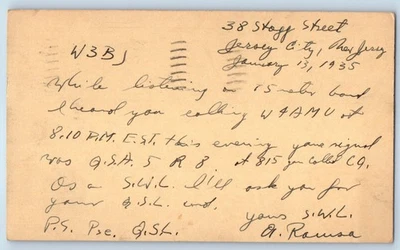 38 Stagg Street
W3BJ
Jersey City, New Jersey
January 13, 1935
While listening on 75 meter band
I heard you calling W4AMU at
8.10 P.M. E.S.T. this evening your signal
was Q.S.A. 5 R 8 at 815 you called CQ.
As a S.W.L. I'll ask you for
your Q.S.L. crd.
yours S.W.L.
P.S. Pse. QSL.
A.